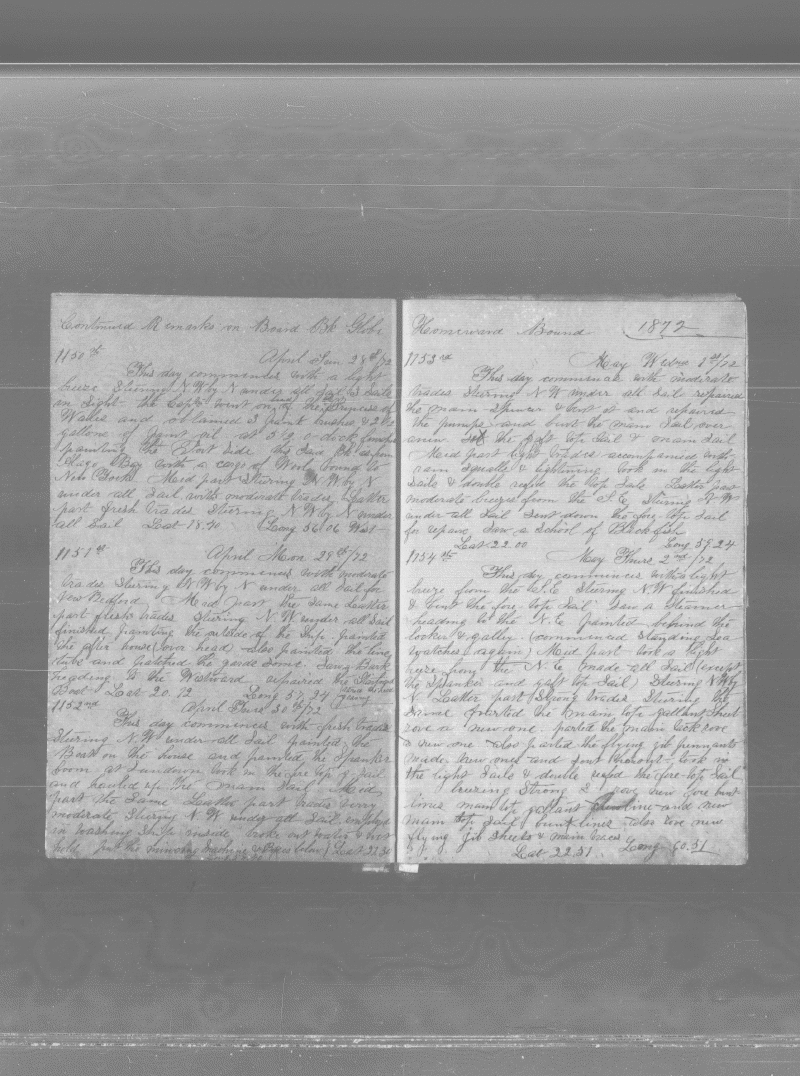 Continued Remarks on Board Bk Globe
1150th April Sun 28th/72
This day commences with a light
breeze Steering N W by N under all Sail 3 Sails
in Sight the Capt went on the Princess of
Wales and obtained 3 paint brushes &
gallons of paint oil at 5 o clock finished
painting the Port Side
Bay with a cargo of Wool bound to
New York Mid part Steering N W by N
under all Sail with moderate trades Latter
part fresh trades Steering N W by N under
all Sail Lat 18.40 Long 56.06 West
1151st April Mon 29th/72
This day commences with moderate
trades Steering N W by N under all Sail for
New Bedford Mid part the Same Latter
part fresh trades Steering N W under all Sail
finished painting the outside of the Ship painted
the after house (over head) also painted the line
tubs and patched the Saw a Bark
heading to the Westward repaired the Starboard
Boat Lat 20.12 Long 57.24
1152nd April Tues 30th/72
This day commences with fresh trades
Steering N. W under all Sail painted the
Boat on the house and painted the Spanker
boom at Sundown took in the fore top g Sail
and hauled up the main Sail Mid
part the Same Latter part trades very
moderate Steering N W under all Sail employed
in washing Ship inside broke out water &
put the mincing machine & below) Lat 21.30
Homeward Bound 1872
1153rd May Weds 1st/72
This day commences with moderate
trades Steering N. W under all Sail repaired
the main Spencer & bent it and repaired
the pumps and bent the main Sail over
anew Set the gaff top Sail & main Sail
Mid part light trades accompanied with
rain Squalls & lightning took in the light
Sails & double reefed the top Sails Latter part
moderate breeze from the S. E Steering N W
under all Sail Sent down the fore top Sail
for repairs Saw a School of Blackfish
Lat 22.00 Long 59.24
1154th May Thurs 2nd/72
This day commences with a light
breeze from the S. E Steering N. W finished
& bent the fore top Sail Saw a Steamer
heading to the N. E (painted behind the
locker & galley (commenced Standing Sea
watches again) Mid part took a light
breeze from the N. E (made all Sail (except
the Spanker and gaff top Sail) Steering N W by
N Latter part (Strong trades Steering the
Same parted the main top gallant Sheet
rove a new one parted the main tack rove
a new one also parted the flying jib pennants
made new ones and put them on took in
the light Sails & double reefed the fore top Sail
breezing Strong & rove new fore bunt
lines main top gallant line and new
main top Sail bunt lines also rove new
flying jib Sheets & main brace
Lat 22.51 Long 60.51